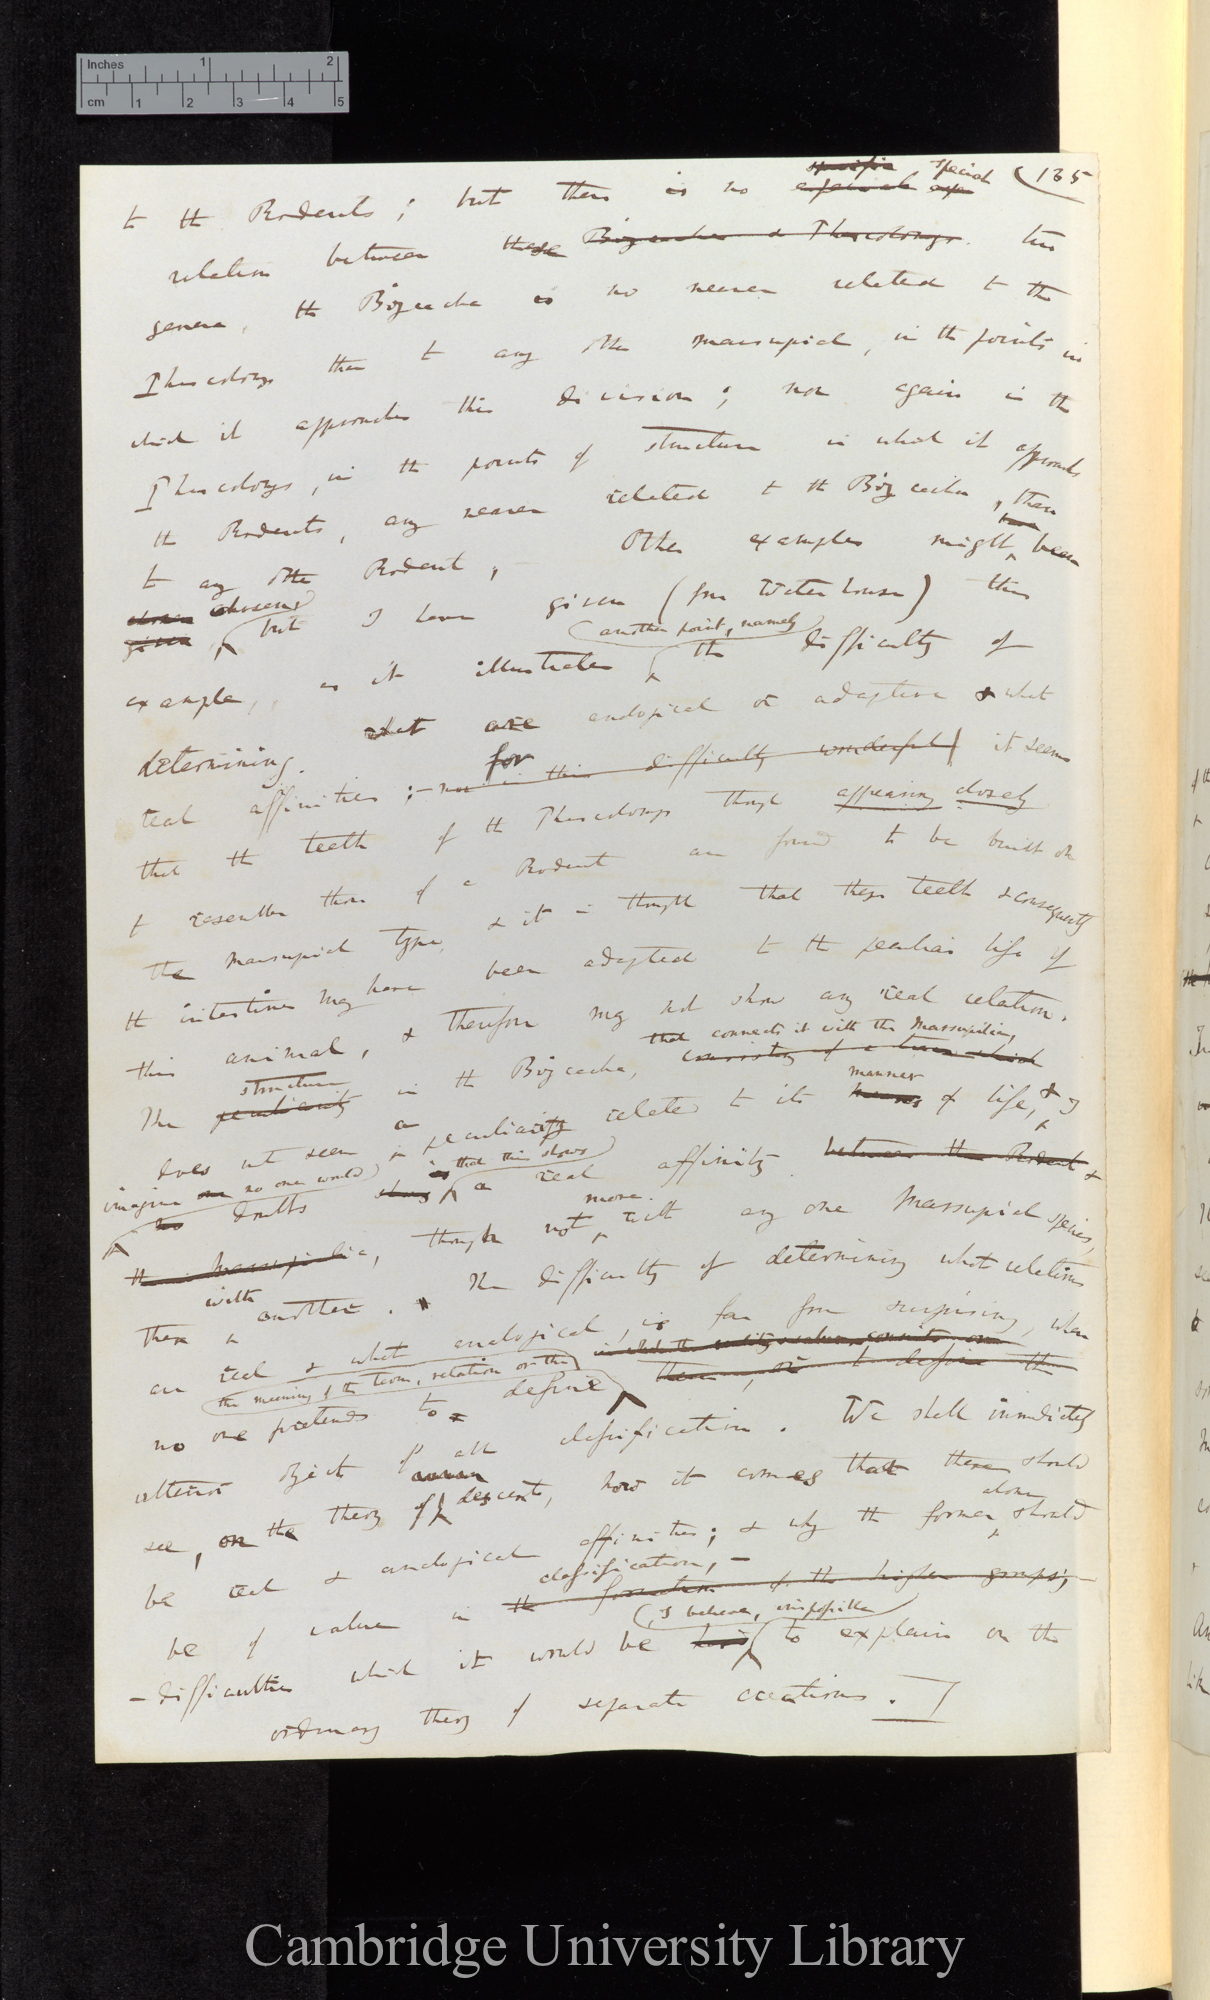 Inches 1 2
cm 1 2 3 4 5
135
to the Rodents; but there is no specific especial special
relation between these Bizcacha & Phascolomys. two
genera, the Bizcacha is no nearer related to the
Phascolomys than to any other marsupial, in the points in
which it approaches this division; nor again is the
Phascolomys, in the points of structure in which it approaches
the Rodents, any nearer related to the Bizcacha, than
to any other Rodent,— Other examples might have been
chosen chosen
given, but I have given (from Waterhouse) this
another point, namely
example, as it illustrates the difficulty of
determining. what are analogical or adaptive & what
real affinities;— nor is this difficulty wonderful for it seems
that the teeth of the Phascolomys though appearing closely
to resemble those of a Rodent are found to be built on
the marsupial type, & it is thought that these teeth & consequently
the intestines may have been adapted to the peculiar life of
this animal, & therefore may not show any real relation.
that connects it with the Marsupialia,
The peculiarity structure in the Bizcacha, consisting of a which
does not seem a peculiarity related to its manner of life, & I
imagine no one would that this shows
no doubts shows is a real affinity between the Rodent &
the Marsupialia, though not more with any one Marsupial species,
than with another. The difficulty of determining what relations
are real & what analogical, is far from surprising, when
the meaning of the term, relation or the
no one pretends to define them, or to define the
ulterior object of all classification. We shall immediately
see, on the theory of descent, how it comes that there should
be real & analogical affinities; & why the former alone should
be of value in classification,— the formation of the higher groups;—
I believe, impossible
—difficulties which it would be to explain on the
ordinary theory of separate creations.
Cambridge University Library